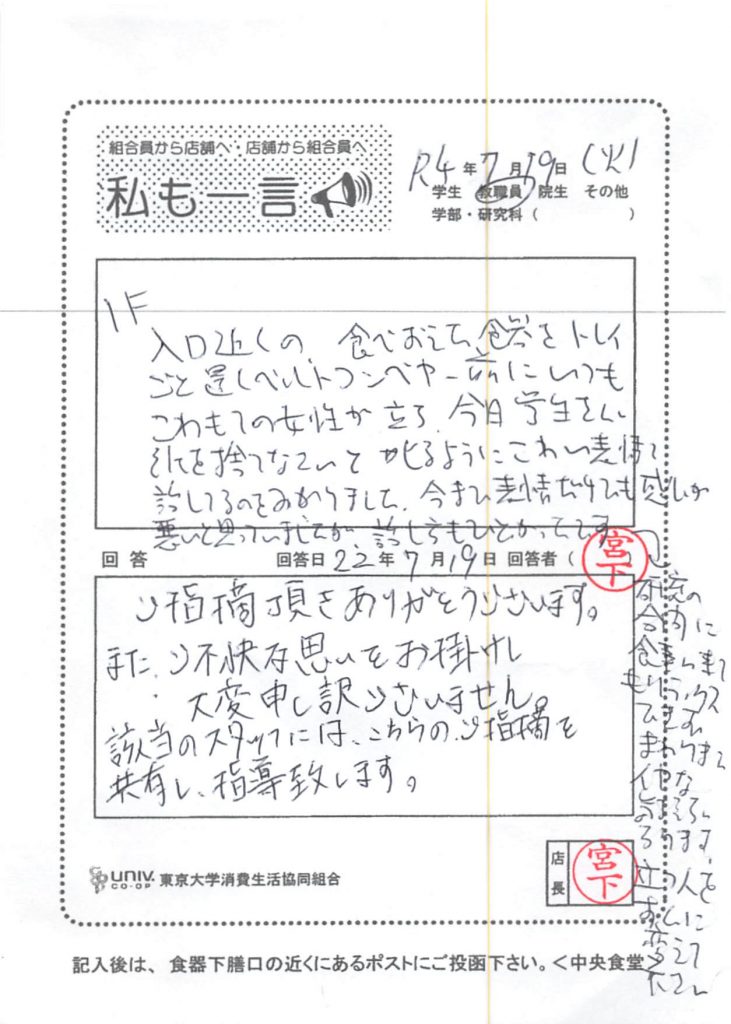 組合員から店舗へ・店舗から組合員へ
私も一言
R4年7月19日(火)
学生 教職員 院生 その他
学部・研究科(　　　)
1F
入口近くの、食べおえた食器をトレイ
ごと置くベルトコンベヤー前にいつも
こわもての女性が立ち、今日学生さんに
を捨てないでと叱るようにこわい表情で
話してるのをみかけました。今まで表情だけでも感じが
悪いと思っていましたが、話し方もひどかったです。
研究の
合間に
食事に来て
もリラックス
できず
イヤな
気持ちに
なります。
立つ人を
変えて
下さい
回答 回答日22年7月19日 回答者(宮下
ご指摘頂きありがとうございます。
また、ご不快な思いをお掛けし
大変申し訳ございません。
該当のスタッフには、こちらのご指摘を
共有し、指導致します。
店長 宮下
UNIV. CO-OP 東京大学消費生活協同組合
記入後は、食器下膳口の近くにあるポストにご投函下さい。<中央食堂>